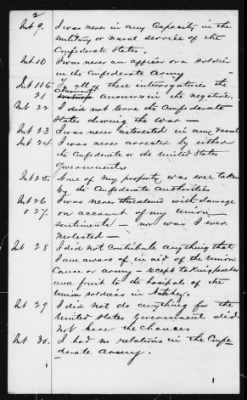 2
Int 9. I was never in any capacity in the
military or naval service of the
Confederate States.
Int 10 I was never an officer or a soldier
in the Confederate Army
Int 11 to To all of these interrogatories the
21 answers in the negative.
Int 22 I did not leave the Confederate
States during the War —
Int 23 I was never interested in any vessel
Int 24 I was never arrested by either
the Confederate or the United States
Governments
Int 25. None of my property was ever taken
by the Confederate authorities
Int 26 I was never threatened with damage
& 27. on account of my Union
sentiments — nor was I ever
molested —
Int 28 I did not contribute anything that
I am aware of in aid of the Union
Cause or army — except taking
and fruit to the hospital of the
Union soldiers in Natchez.
Int 29 I did not do anything for the
United States Government did
not have the chance
Int 30. I had no relations in the Confe-
derate Army.